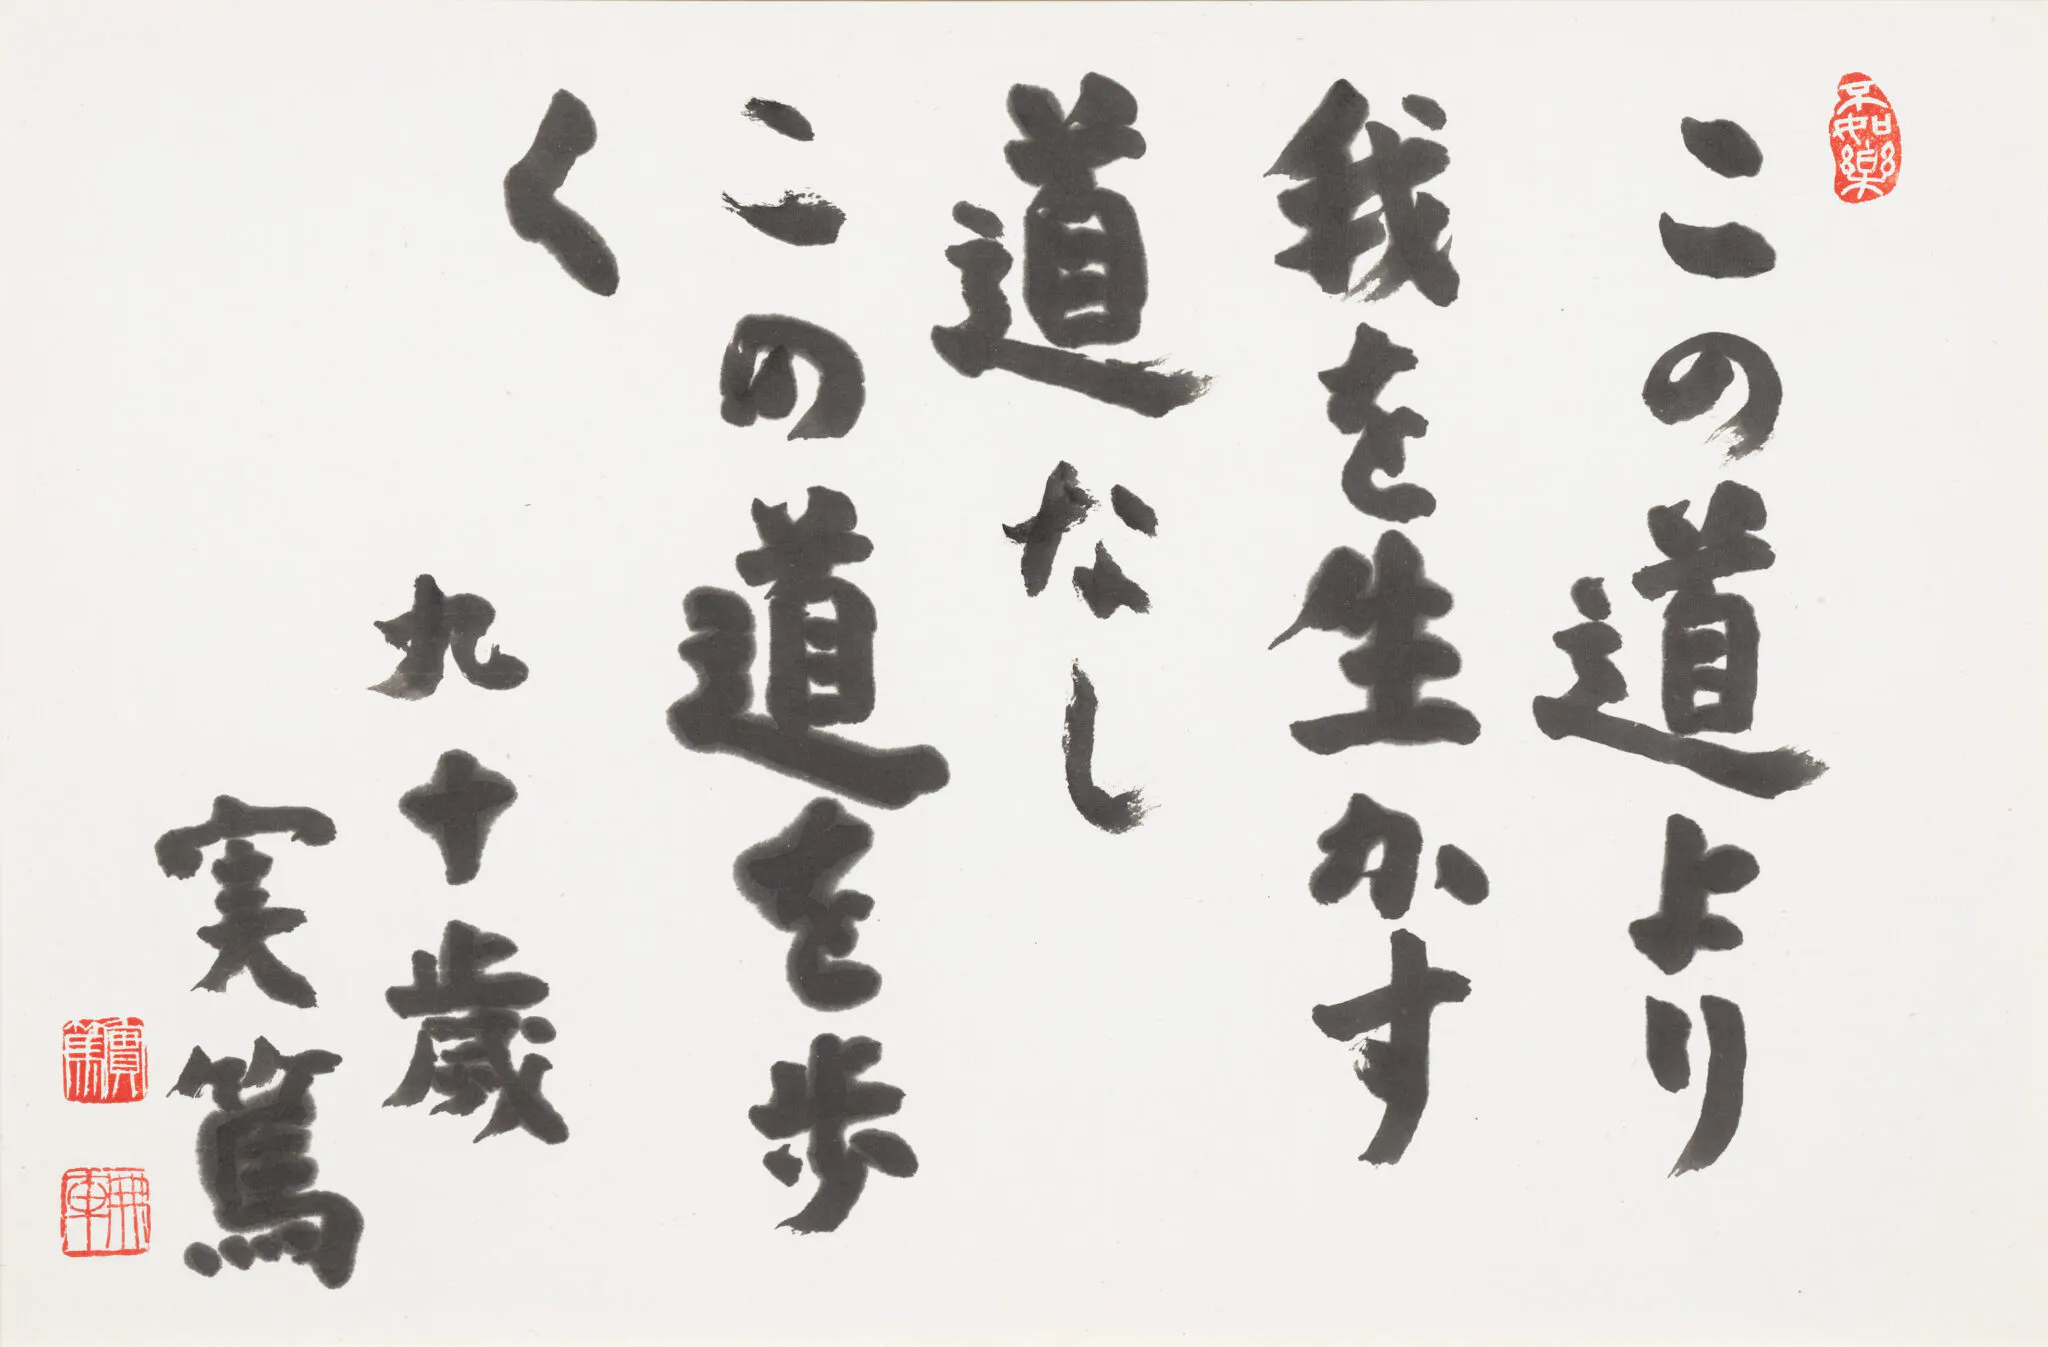 不如樂
この道より
我を生かす
道なし
この道を歩
く
九十歳
実篤
實篤
無車